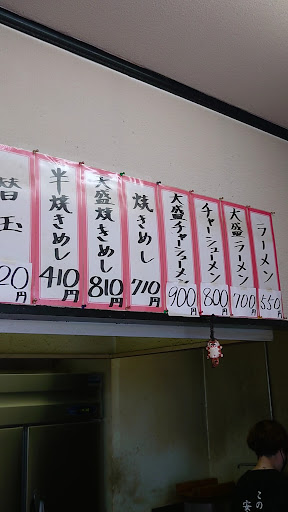 ラーメン
550円
大盛ラーメン
700円
チャーシューメン
800円
大盛チャーシューメン
900円
焼きめし
710円
大盛焼きめし
810円
半焼きめし
410円
替玉
20円
この
安